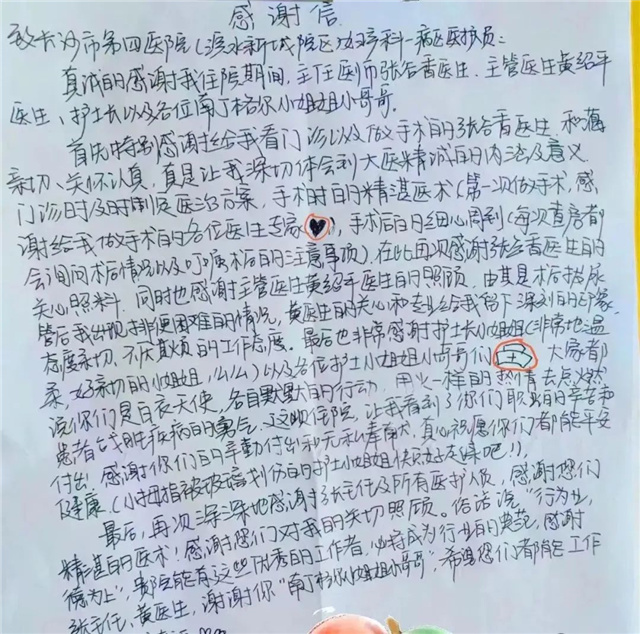 感谢信
致长沙市第四医院(滨水新城院区)妇产科一病区医护员:
真诚的感谢我住院期间,主任医师张谷香医生、主管医生黄绍平
医生、护士长以及各位南丁格尔小姐姐小哥哥。
首先特别感谢给我看门诊以及做手术的张谷香医生,和蔼
亲切、关怀认真,真是让我深切体会到大医精诚的内涵及意义
门诊时及时制定医治方案,手术时的精湛医术(第一次做手术,感
谢给我做手术的各位医生专家),手术后的细心周到(每次查房都
会询问术后情况以及叮嘱术后的注意事项)在此再次感谢张谷香医生的
关心照料。同时也感谢主管医生黄绍平医生的照顾,由其是术后拔尿
管后我出现排便困难的情况,黄医生的关心和专业给我留下深刻的印象
态度亲切、不厌其烦的工作态度。最后也非常感谢护士长小姐姐(非常地温
柔,好亲切的小姐姐,么么)以及各位护士小姐姐小哥哥们 大家都
说你们是白衣天使,各自默默的行动,用火一样的热情去点燃
患者战胜疾病的勇气。这次住院,让我看到了你们职业的辛苦和
付出,感谢你们的辛勤付出和无私奉献,真心祝愿你们都能平安
健康(小拇指被玻璃划伤的护士小姐姐快点好起来吧!)。
最后,再次深深地感谢张主任及所有医护人员,感谢您们
精湛的医术!感谢您们对我的关切照顾。俗话说"行为业,
德为上",贵院能有这些优秀的工作者,必将成为行业的典范,感谢
张主任、黄医生,谢谢你"南丁格尔小姐姐小哥哥",希望您们都能工作